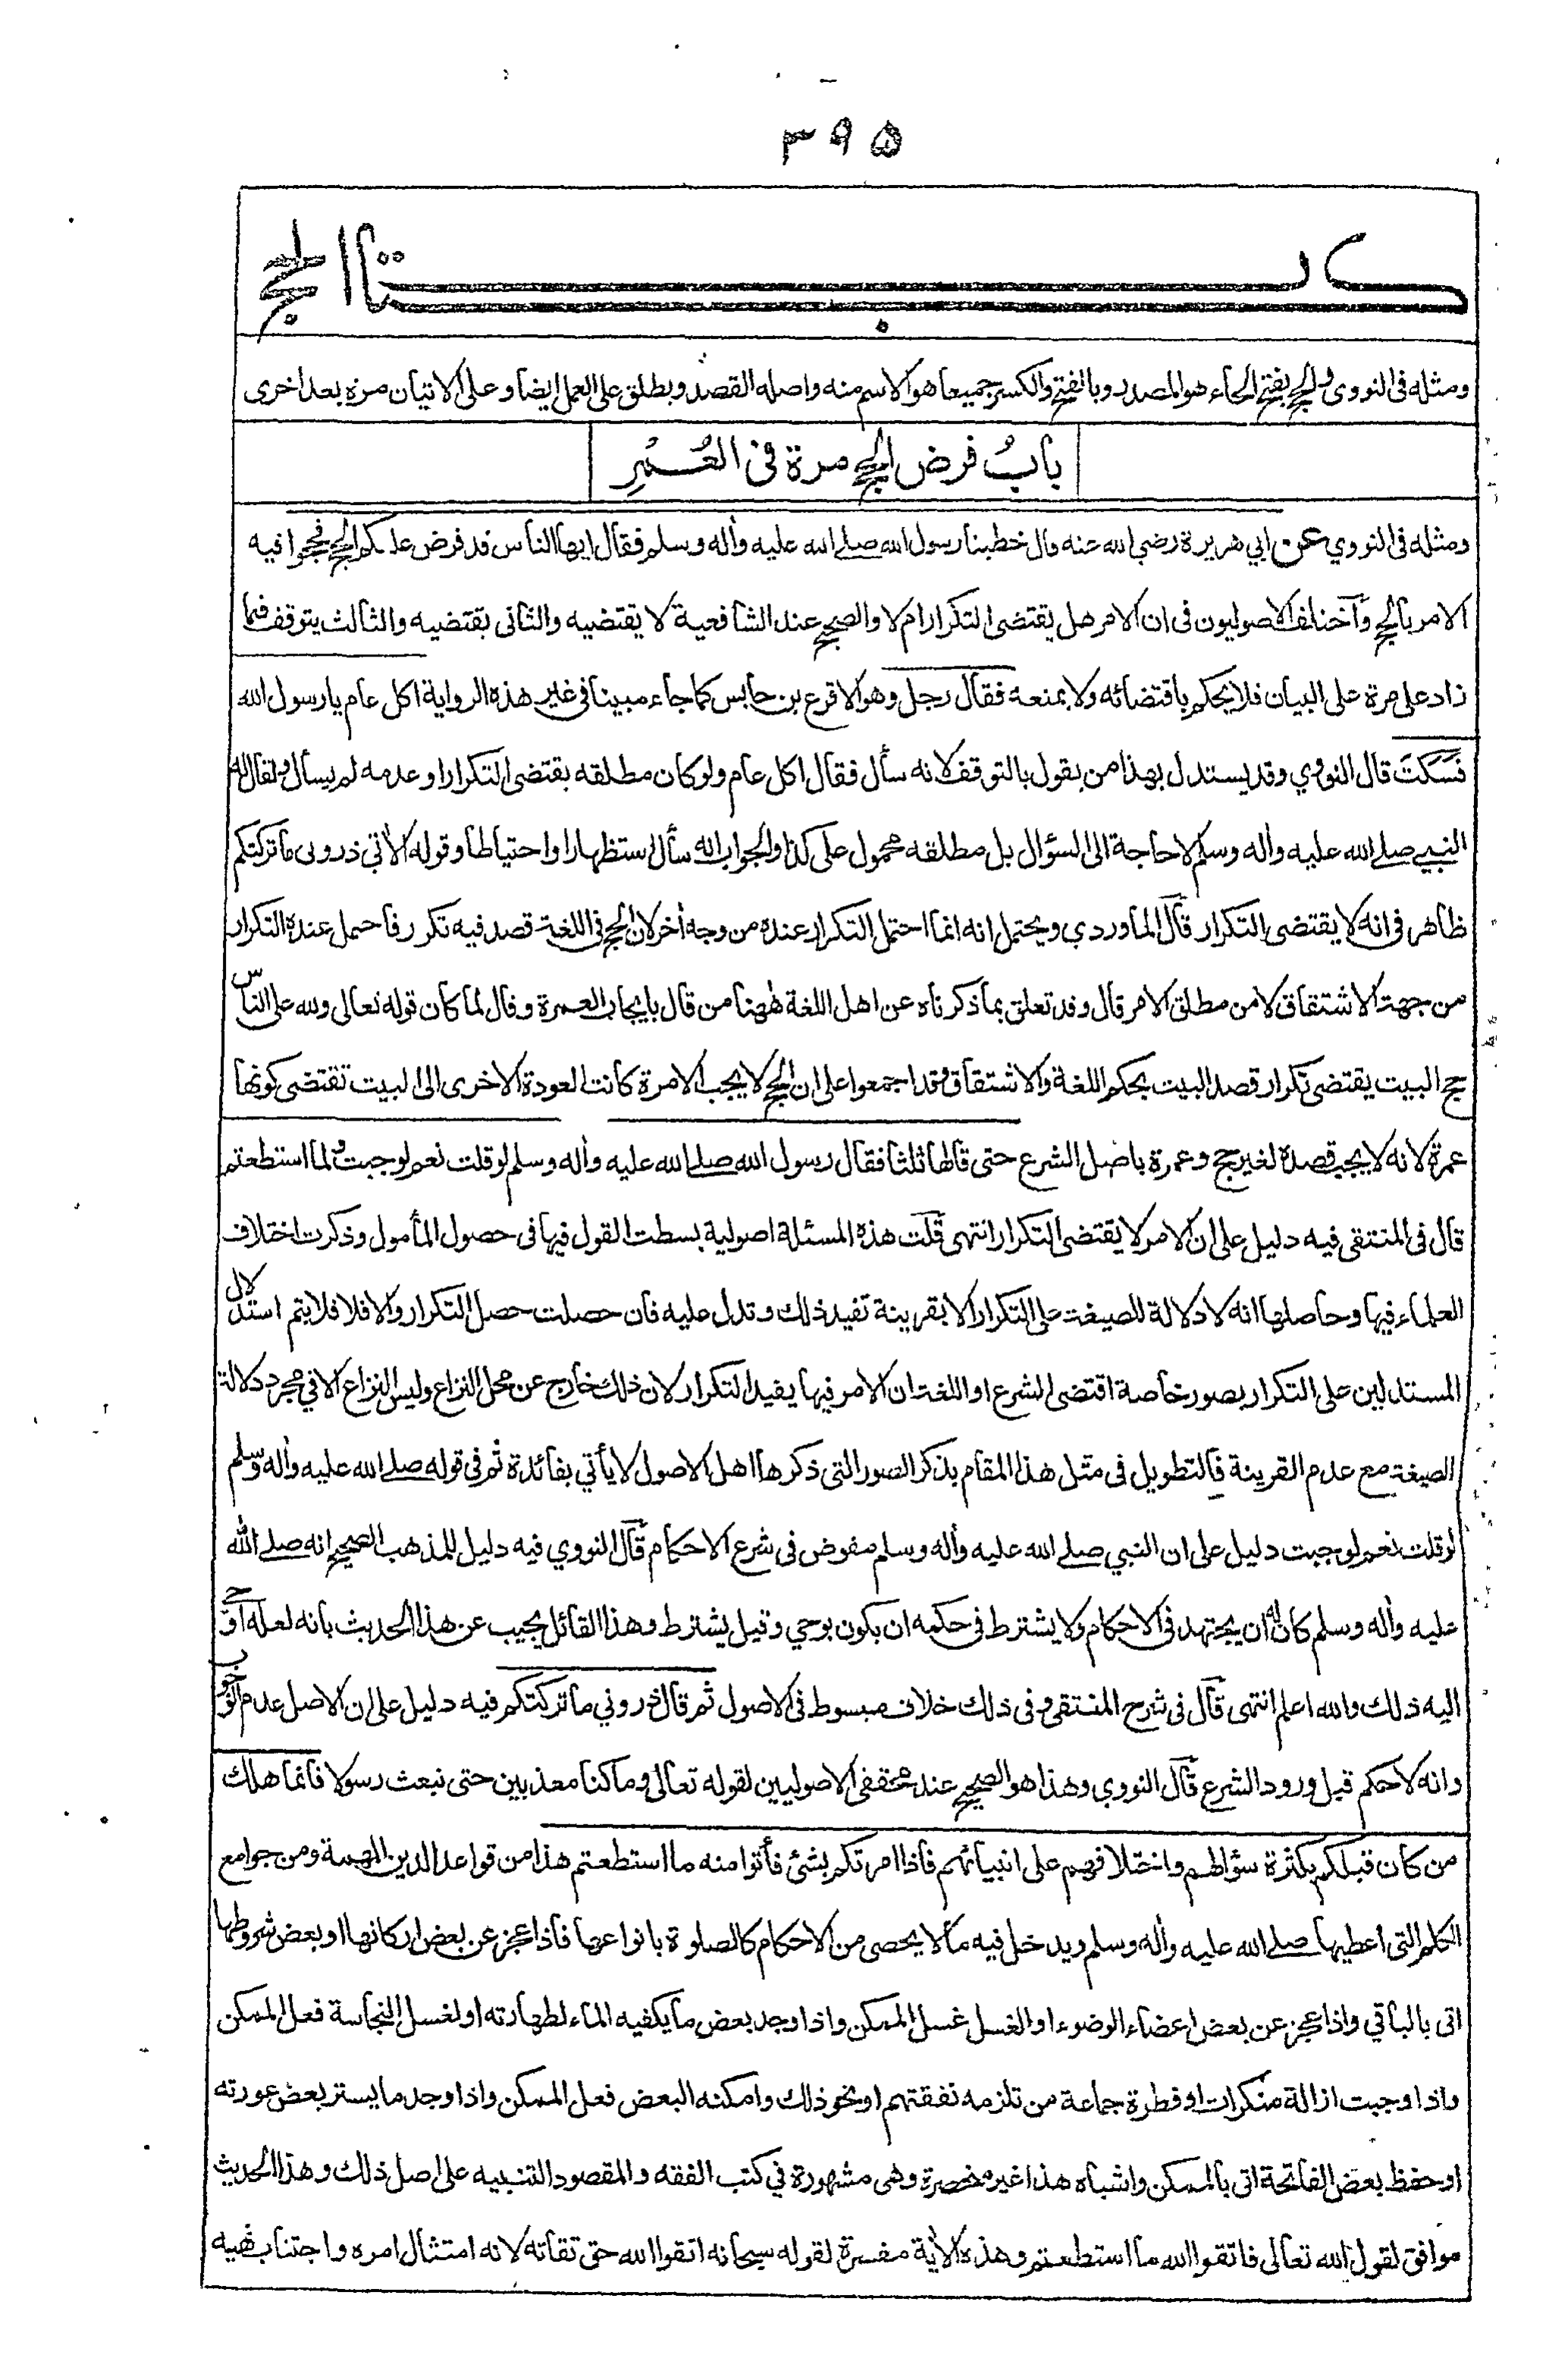 ۳۹۵
كتاب الحج
ومثله فى النووى والحج بفتح الحاء هو المصدر وبالفتح والكسر جميعا هو الاسم منه واصله القصد ويطلق على العمل ايضا وعلى الاتيان مرة بعد اخرى
بابُ فرض الحج مرة فى العُمُرِ
ومثله فى النووي عن ابي هريرة رضي الله عنه قال خطبنا رسول الله صلے الله عليه وأله وسلم فقال ايها الناس قد فرض عليكم الحج فحجوا فيه
الامر بالحج وآختلف الاصوليون فى ان الامر هل يقتضى التكرار ام لا والصحيح عند الشافعية لا يقتضيه والثانى يقتضيه والثالث يتوقف فيما
زاد على مرة على البيان فلا يحكم باقتضائه ولا بمنعه فقال رجل وهو الاقرع بن حابس كما جاء مبينا فى غير هذه الرواية اكل عام يا رسول الله
فَسَكَتَ قال النووي وقد يستدل بهذا من يقول بالتوقف لانه سأل فقال اكل عام ولو كان مطلقه يقتضى التكرار او عدمه لم يسأل ولقال له
النبي صلے الله عليه وأله وسلم لا حاجة الى السؤال بل مطلقه محمول على كذا والجواب انه سأل استظهارا واحتياطا وقوله الأتي ذرونى ما تركتكم
ظاهر فى انه لا يقتضى التكرار قآل الماوردي ويحتمل انه انما احتمل التكرار عنده من وجه أخر لان الحج فى اللغة قصد فيه تكرر فاحتمل عنده التكرار
من جهة الاشتقاق لا من مطلق الامر قال وقد تعلق بما ذكرناه عن اهل اللغة ههنا من قال بايجاب العمرة وقال لما كان قوله تعالى ولله على الناس
حج البيت يقتضى تكرار قصد البيت بحكم اللغة والاشتقاق وقد اجمعوا على ان الحج لا يجب الا مرة كانت العودة الاخرى الى البيت تقتضى كونها
عمرة لانه لا يجب قصده لغير حج وعمرة باصل الشرع حتى قالها ثلثا فقال رسول الله صلے الله عليه وأله وسلم لو قلت نعم لوجبت ولما استطعتم
قال فى المنتقى فيه دليل على ان الامر لا يقتضى التكرار انتهى قلت هذه المسئلة اصولية بسطت القول فيها فى حصول المأمول وذكرت اختلاف
العلماء فيها وحاصلها انه لا دلالة للصيغة على التكرار الا بقرينة تفيد ذلك وتدل عليه فان حصلت حصل التكرار والا فلا فلا يتم استدلال
المستدلين على التكرار بصور خاصة اقتضى الشرع او اللغة ان الامر فيها يفيد التكرار لان ذلك خارج عن محل النزاع وليس النزاع الا في مجرد دلالة
الصيغة مع عدم القرينة فالتطويل فى مثل هذا المقام بذكر الصور التى ذكرها اهل الاصول لا يأتي بفائدة ثم فى قوله صلے الله عليه وأله وسلم
لو قلت نعم لوجبت دليل على ان النبي صلے الله عليه وأله وسلم مفوض فى شرع الاحكام قآل النووي فيه دليل للمذهب الصحيح انه صلے الله
عليه وأله وسلم كان له ان يجتهد فى الاحكام ولا يشترط فى حكمه ان يكون بوحي وقيل يشترط وهذا القائل يجيب عن هذا الحديث بانه لعله اوحي
اليه ذلك والله اعلم انتهى قآل فى شرح المنتقى وفى ذلك خلاف مبسوط فى الاصول ثم قال ذروني ما تركتكم فيه دليل على ان الاصل عدم الوجوب
وانه لا حكم قبل ورود الشرع قآل النووي وهذا هو الصحيح عند محققى الاصوليين لقوله تعالى وما كنا معذبين حتى نبعث رسولا فانما هلك
من كان قبلكم بكثرة سؤالهم واختلافهم على انبيائهم فاذا امرتكم بشئ فأتوا منه ما استطعتم هذا من قواعد الدين المهمة ومن جوامع
الكلم التى اعطيها صلے الله عليه وأله وسلم ويدخل فيه ما لا يحصى من الاحكام كالصلوة بانواعها فاذا عجز عن بعض اركانها او بعض شروطها
اتى بالباقي واذا عجز عن بعض اعضاء الوضوء او الغسل غسل الممكن واذا وجد بعض ما يكفيه الماء لطهارته او لغسل النجاسة فعل الممكن
واذا وجبت ازالة منكرات او فطرة جماعة من تلزمه نفقتهم او نحو ذلك وامكنه البعض فعل الممكن واذا وجد ما يستر بعض عورته
او حفظ بعض الفاتحة اتى بالممكن واشباه هذا غير منحصرة وهى مشهورة في كتب الفقه والمقصود التنبيه على اصل ذلك وهذا الحديث
موافق لقول الله تعالى فاتقوا الله ما استطعتم وهذه الأية مفسرة لقوله سبحانه اتقوا الله حق تقاته لانه امتثال امره واجتناب نهيه